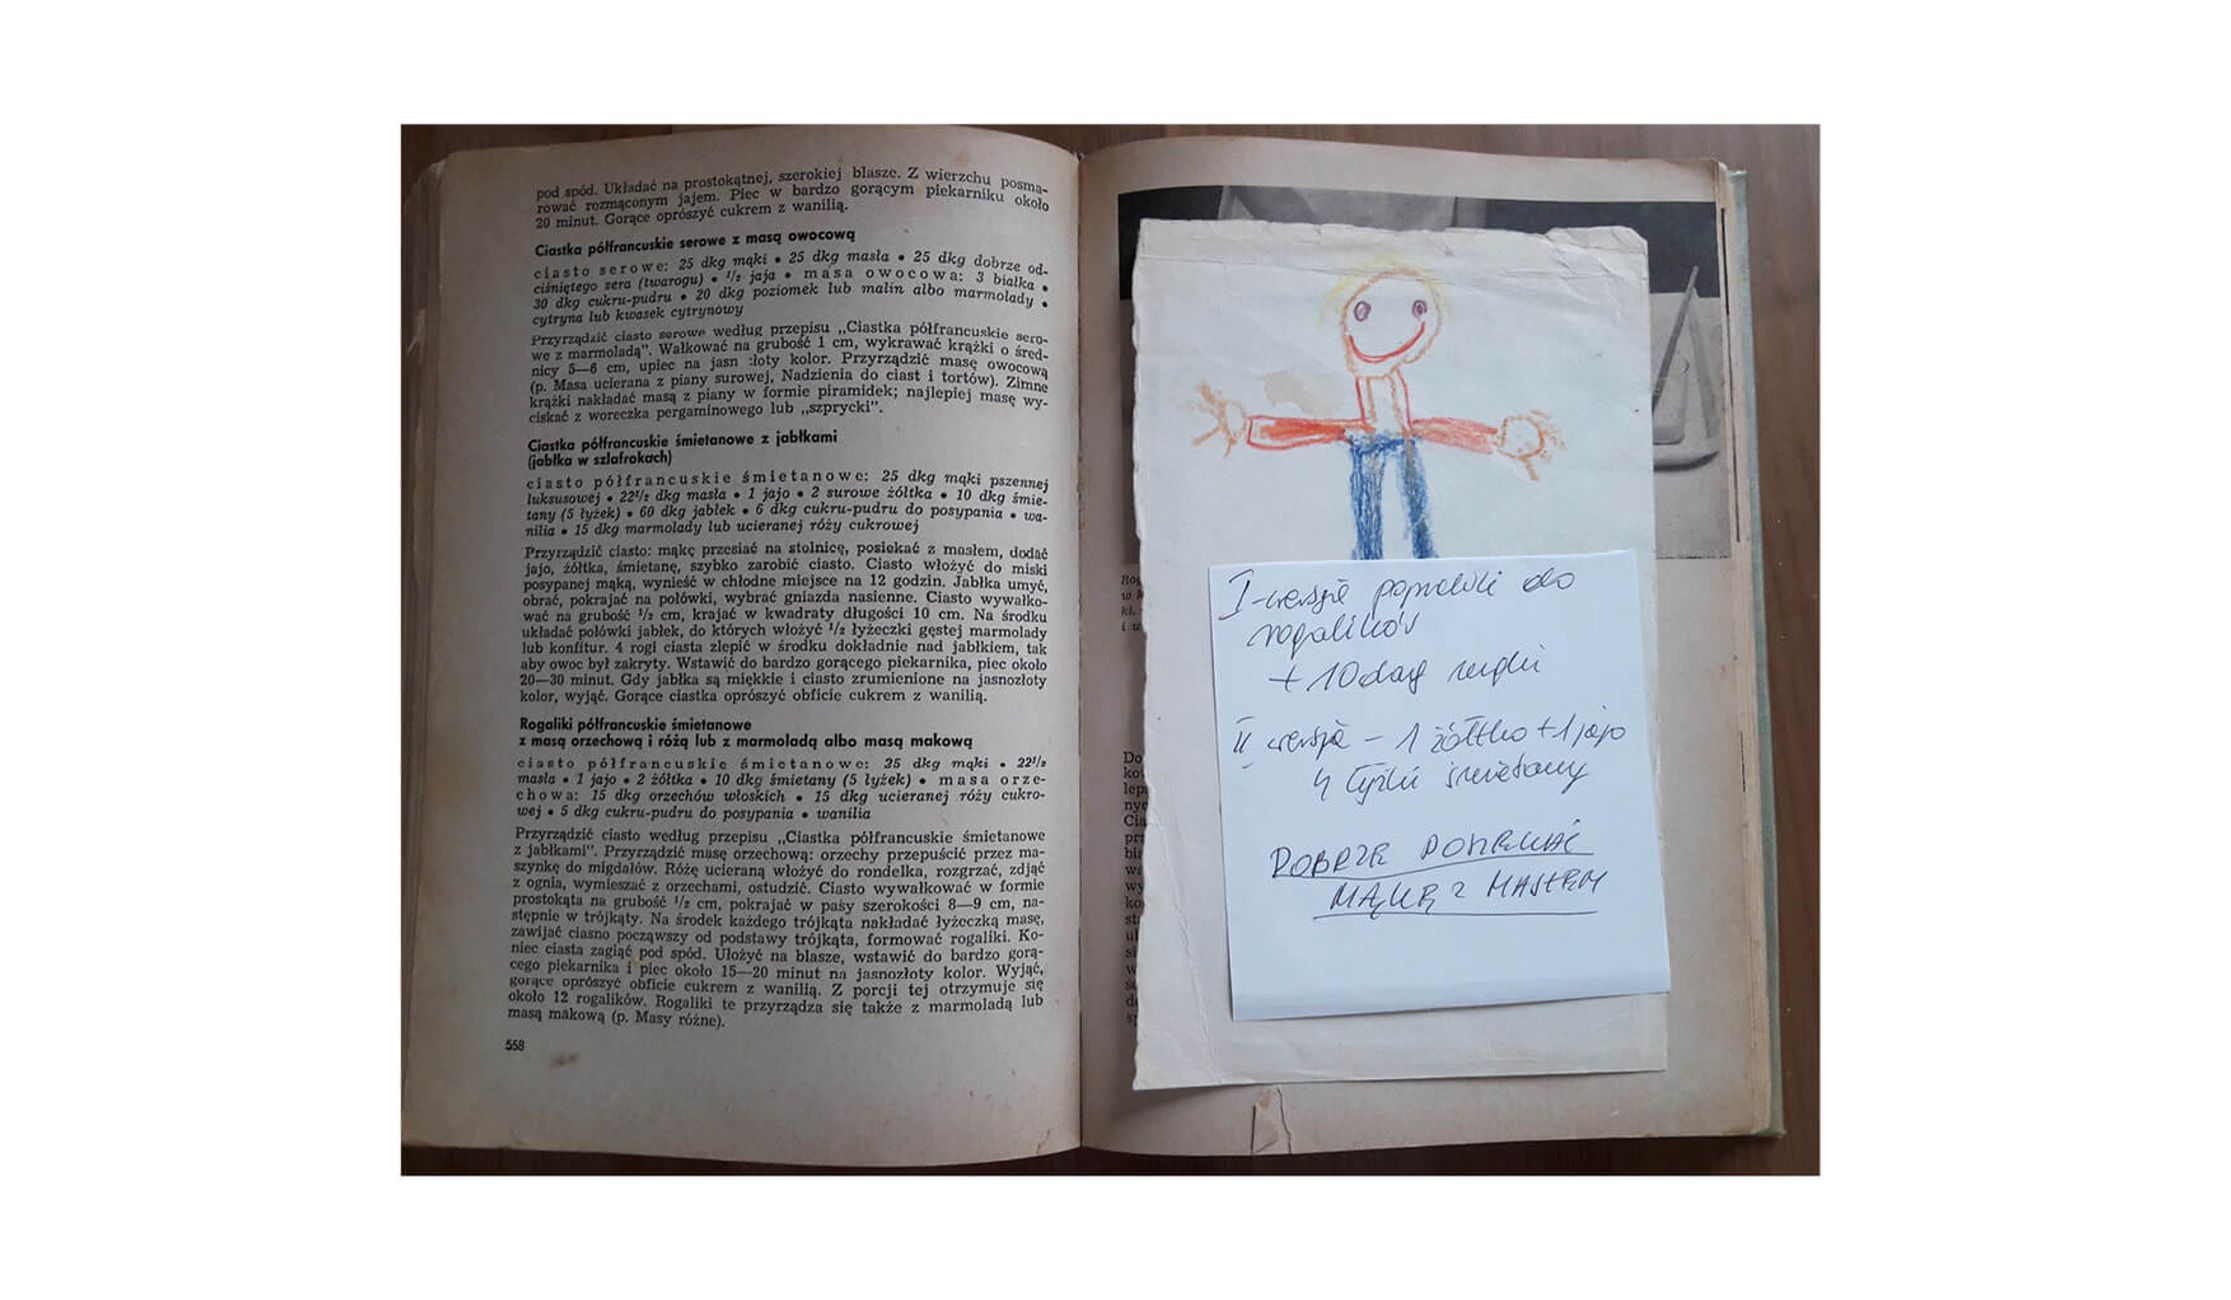 pod spód. Układać na prostokątnej, szerokiej blasze. Z wierzchu posma-
rować rozmąconym jajem. Piec w bardzo gorącym piekarniku około
20 minut. Gorące oprószyć cukrem z wanilią.
Ciastka półfrancuskie serowe z masą owocową
ciasto serowe: 25 dkg mąki • 25 dkg masła • 25 dkg dobrze od-
ciśniętego sera (twarogu) • 1/2 jaja • masa owocowa: 3 białka •
30 dkg cukru-pudru • 20 dkg poziomek lub malin albo marmolady •
cytryna lub kwasek cytrynowy
Przyrządzić ciasto serowe według przepisu „Ciastka półfrancuskie sero-
we z marmoladą”. Wałkować na grubość 1 cm, wykrawać krążki o śred-
nicy 5—6 cm, upiec na jasn :łoty kolor. Przyrządzić masę owocową
(p. Masa ucierana z piany surowej, Nadzienia do ciast i tortów). Zimne
krążki nakładać masą z piany w formie piramidek; najlepiej masę wy-
ciskać z woreczka pergaminowego lub „szprycki”.
Ciastka półfrancuskie śmietanowe z jabłkami
(jabłka w szlafrokach)
ciasto półfrancuskie śmietanowe: 25 dkg mąki pszennej
luksusowej • 22 1/2 dkg masła • 1 jajo • 2 surowe żółtka • 10 dkg śmie-
tany (5 łyżek) • 60 dkg jabłek • 6 dkg cukru-pudru do posypania • wa-
nilia • 15 dkg marmolady lub ucieranej róży cukrowej
Przyrządzić ciasto: mąkę przesiać na stolnicę, posiekać z masłem, dodać
jajo, żółtka, śmietanę, szybko zarobić ciasto. Ciasto włożyć do miski
posypanej mąką, wynieść w chłodne miejsce na 12 godzin. Jabłka umyć,
obrać, pokrajać na połówki, wybrać gniazda nasienne. Ciasto wywałko-
wać na grubość 1/2 cm, krajać w kwadraty długości 10 cm. Na środku
układać połówki jabłek, do których włożyć 1/2 łyżeczki gęstej marmolady
lub konfitur. 4 rogi ciasta zlepić w środku dokładnie nad jabłkiem, tak
aby owoc był zakryty. Wstawić do bardzo gorącego piekarnika, piec około
20—30 minut. Gdy jabłka są miękkie i ciasto zrumienione na jasnozłoty
kolor, wyjąć. Gorące ciastka oprószyć obficie cukrem z wanilią.
Rogaliki półfrancuskie śmietanowe
z masą orzechową i różą lub z marmoladą albo masą makową
ciasto półfrancuskie śmietanowe: 25 dkg mąki • 22 1/2
masła • 1 jajo • 2 żółtka • 10 dkg śmietany (5 łyżek) • masa orze-
chowa: 15 dkg orzechów włoskich • 15 dkg ucieranej róży cukro-
wej • 5 dkg cukru-pudru do posypania • wanilia
Przyrządzić ciasto według przepisu „Ciastka półfrancuskie śmietanowe
z jabłkami”. Przyrządzić masę orzechową: orzechy przepuścić przez ma-
szynkę do migdałów. Różę ucieraną włożyć do rondelka, rozgrzać, zdjąć
z ognia, wymieszać z orzechami, ostudzić. Ciasto wywałkować w formie
prostokąta na grubość 1/2 cm, pokrajać w pasy szerokości 8—9 cm, na-
stępnie w trójkąty. Na środek każdego trójkąta nakładać łyżeczką masę,
zawijać ciasno począwszy od podstawy trójkąta, formować rogaliki. Ko-
niec ciasta zagiąć pod spód. Ułożyć na blasze, wstawić do bardzo gorą-
cego piekarnika i piec około 15—20 minut na jasnozłoty kolor. Wyjąć,
gorące oprószyć obficie cukrem z wanilią. Z porcji tej otrzymuje się
około 12 rogalików. Rogaliki te przyrządza się także z marmoladą lub
masą makową (p. Masy różne).
558
I-wersja poprawki do
rogalików
+ 10 dag mąki
II wersja - 1 żółtko + 1 jajo
4 łyżki śmietany
DOBRZE POSIEKAĆ
MĄKĘ Z MASŁEM